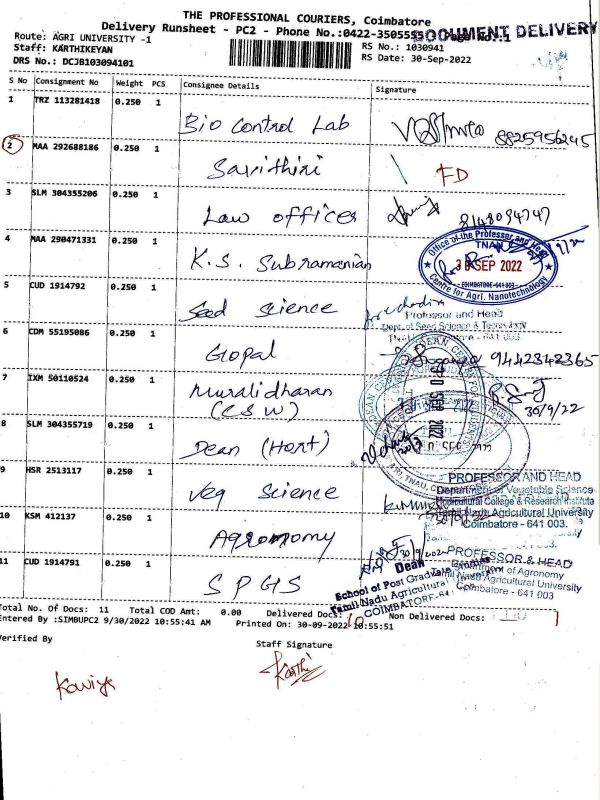 THE PROFESSIONAL COURIERS, Coimbatore
Delivery Runsheet - PC2 - Phone No.:0422-350555
DOCUMENT DELIVERY
Route: AGRI UNIVERSITY -1
Staff: KARTHIKEYAN
RS No.: 1030941
DRS No.: DCJB103094101
RS Date: 30-Sep-2022
S No Consignment No Weight PCS Consignee Details Signature
1 TRZ 113281418 0.250 1
Bio Control Lab 8825956245
2 MAA 292688186 0.250 1
Savithiri FD
3 SLM 304355206 0.250 1
Law officer 8148094747
4 MAA 290471331 0.250 1
K.S. Subramanian
Office of the Professor and Head
TNAU
30 SEP 2022
COIMBATORE-641 003
Centre for Agri. Nanotechnology
5 CUD 1914792 0.250 1
Seed Science
Professor and Head
Dept. of Seed Science & Technology
6 CDM 55195086 0.250 1
Gopal 9442342365
7 IXM 50110524 0.250 1
Muralidharan
(CSW) 30/9/22
8 SLM 304355719 0.250 1
Dean (Hort)
9 HSR 2513117 0.250 1
Veg Science
PROFESSOR AND HEAD
Department of Vegetable Science
Horticultural College & Research Institute
Tamil Nadu Agricultural University
Coimbatore - 641 003.
10 KSM 412137 0.250 1
Agronomy
PROFESSOR & HEAD
Department of Agronomy
Tamil Nadu Agricultural University
Coimbatore - 641 003
11 CUD 1914791 0.250 1
SPGS
Dean
School of Post Graduate Studies
Tamil Nadu Agricultural University
COIMBATORE-641 003
Total No. Of Docs: 11 Total COD Amt: 0.00 Delivered Docs: 10 Non Delivered Docs:
Entered By :SIMBUPC2 9/30/2022 10:55:41 AM Printed On: 30-09-2022 10:55:51
Verified By Staff Signature
Kaviya Karthi